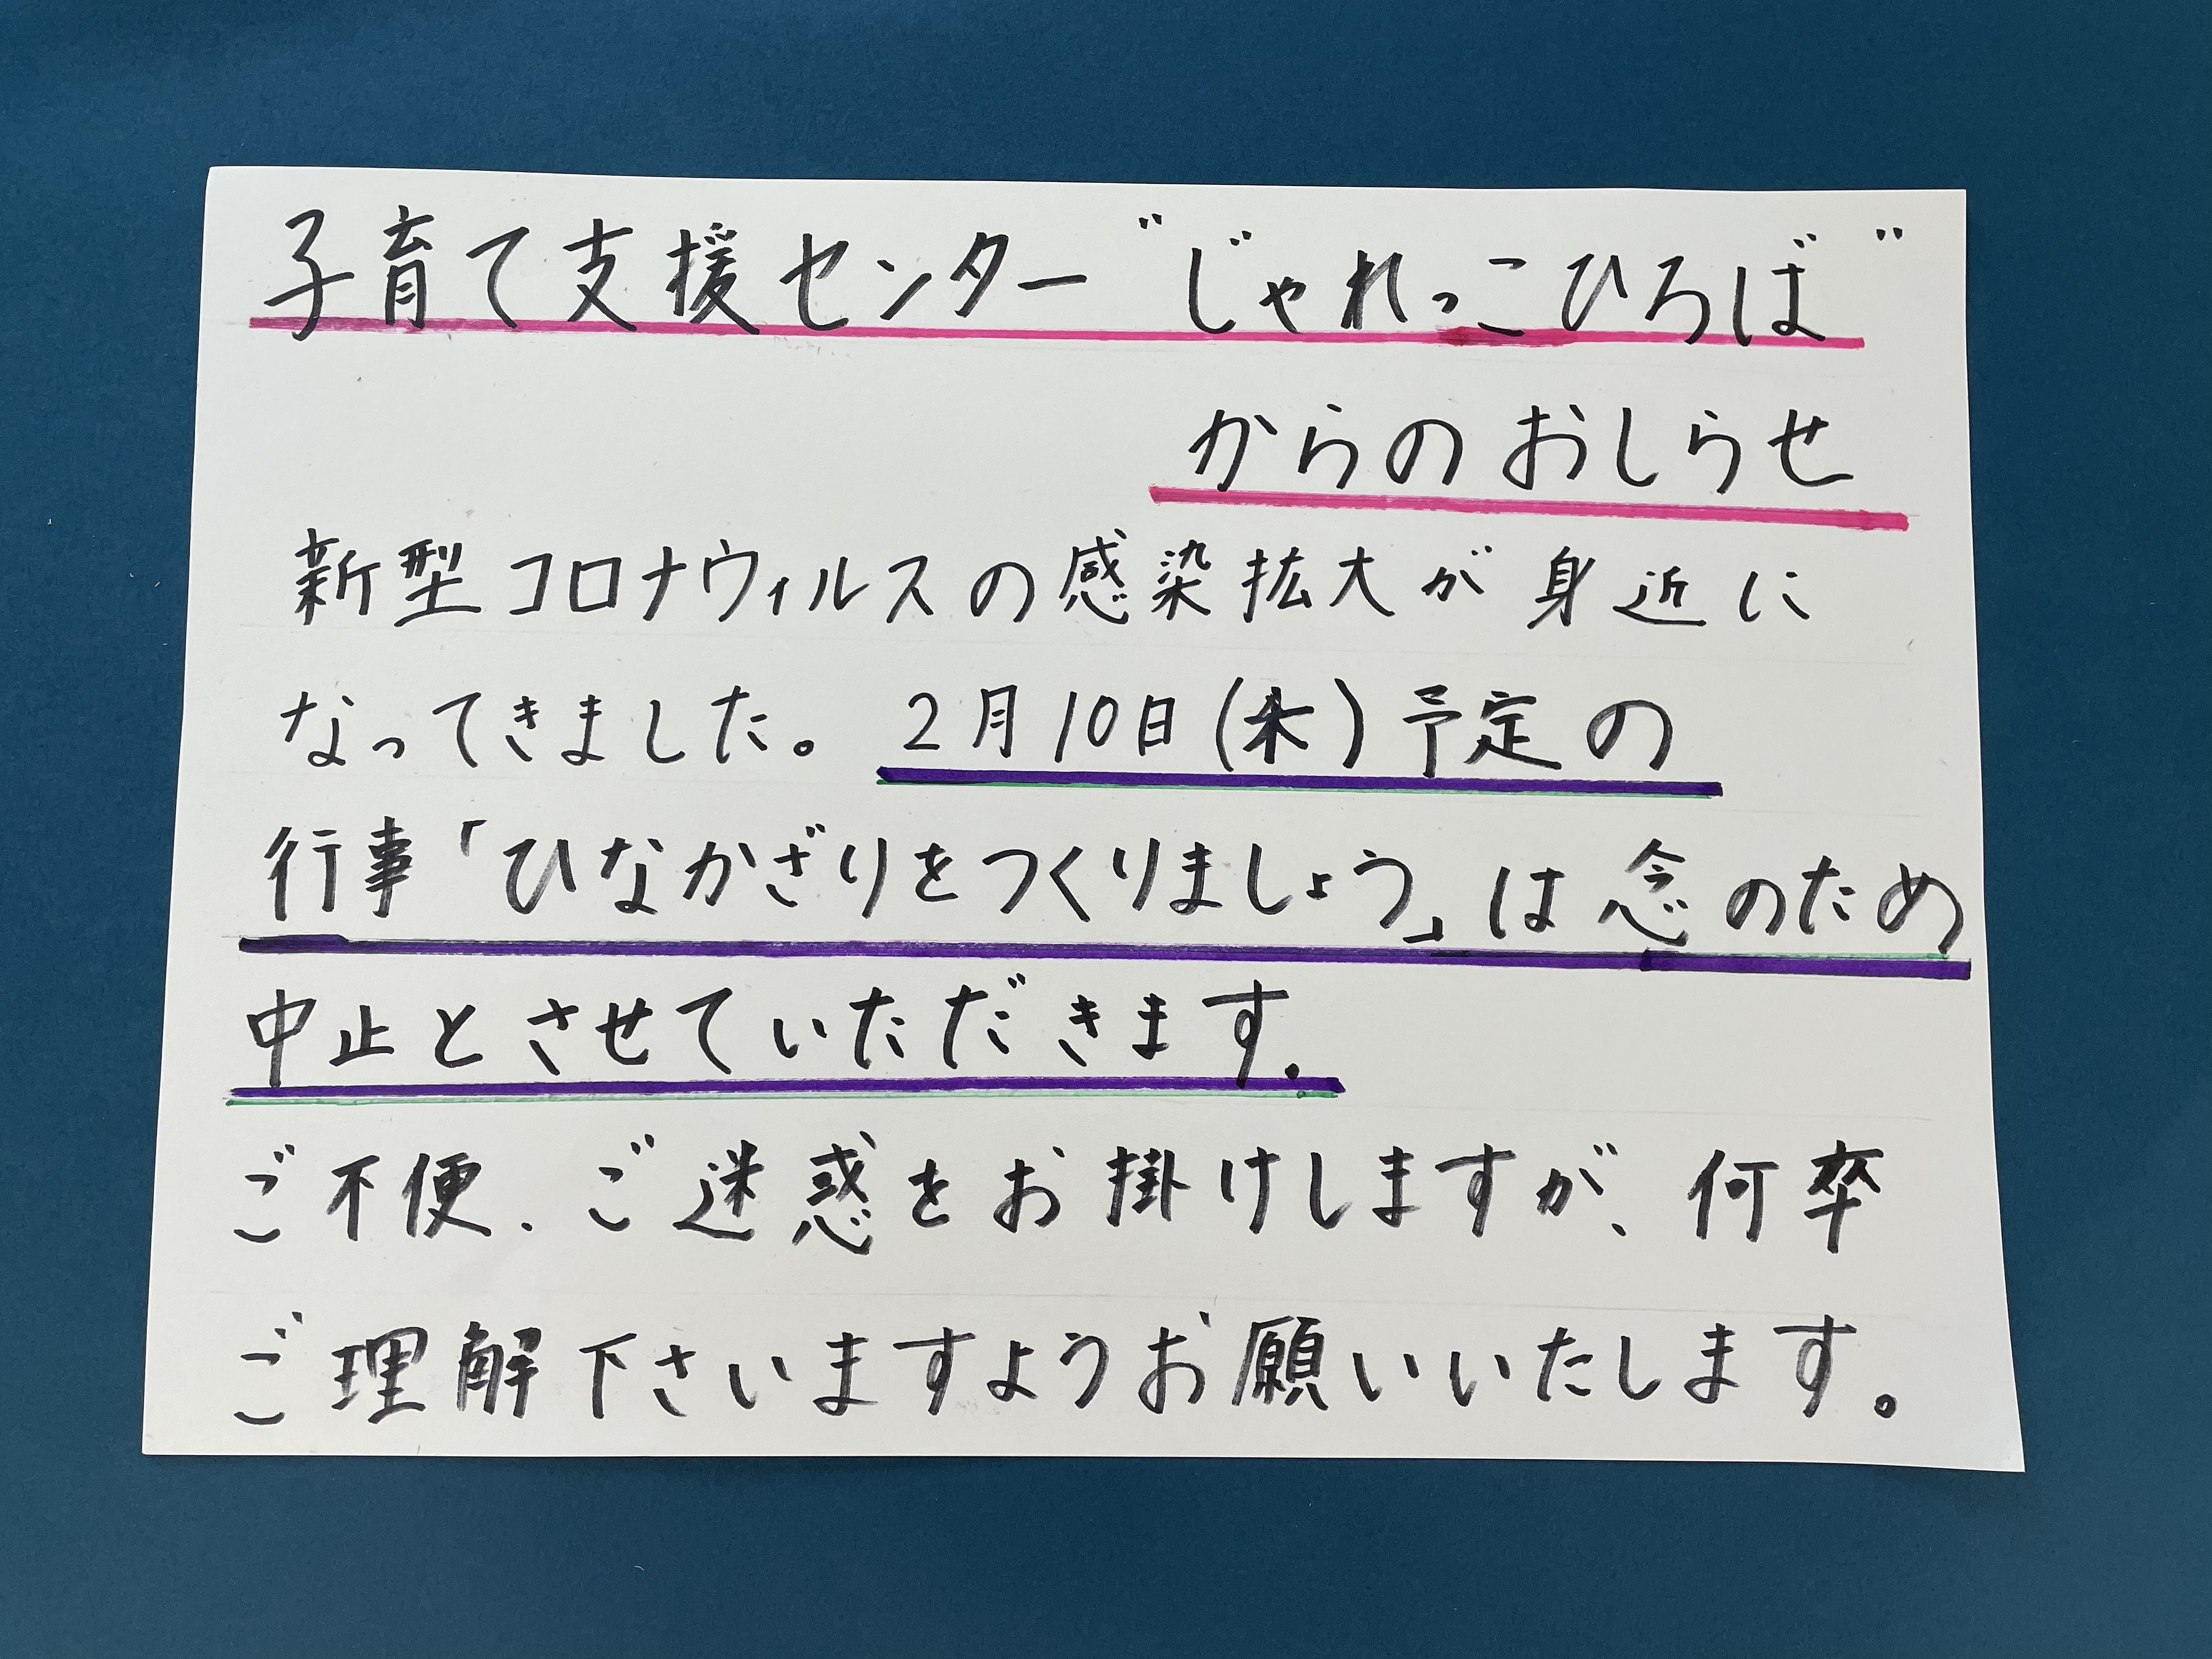 子育て支援センター"じゃれっこひろば"
からのおしらせ
新型コロナウィルスの感染拡大が身近に
なってきました。2月10日(木)予定の
行事「ひなかざりをつくりましょう」は念のため
中止とさせていただきます。
ご不便、ご迷惑をお掛けしますが、何卒
ご理解下さいますようお願いいたします。